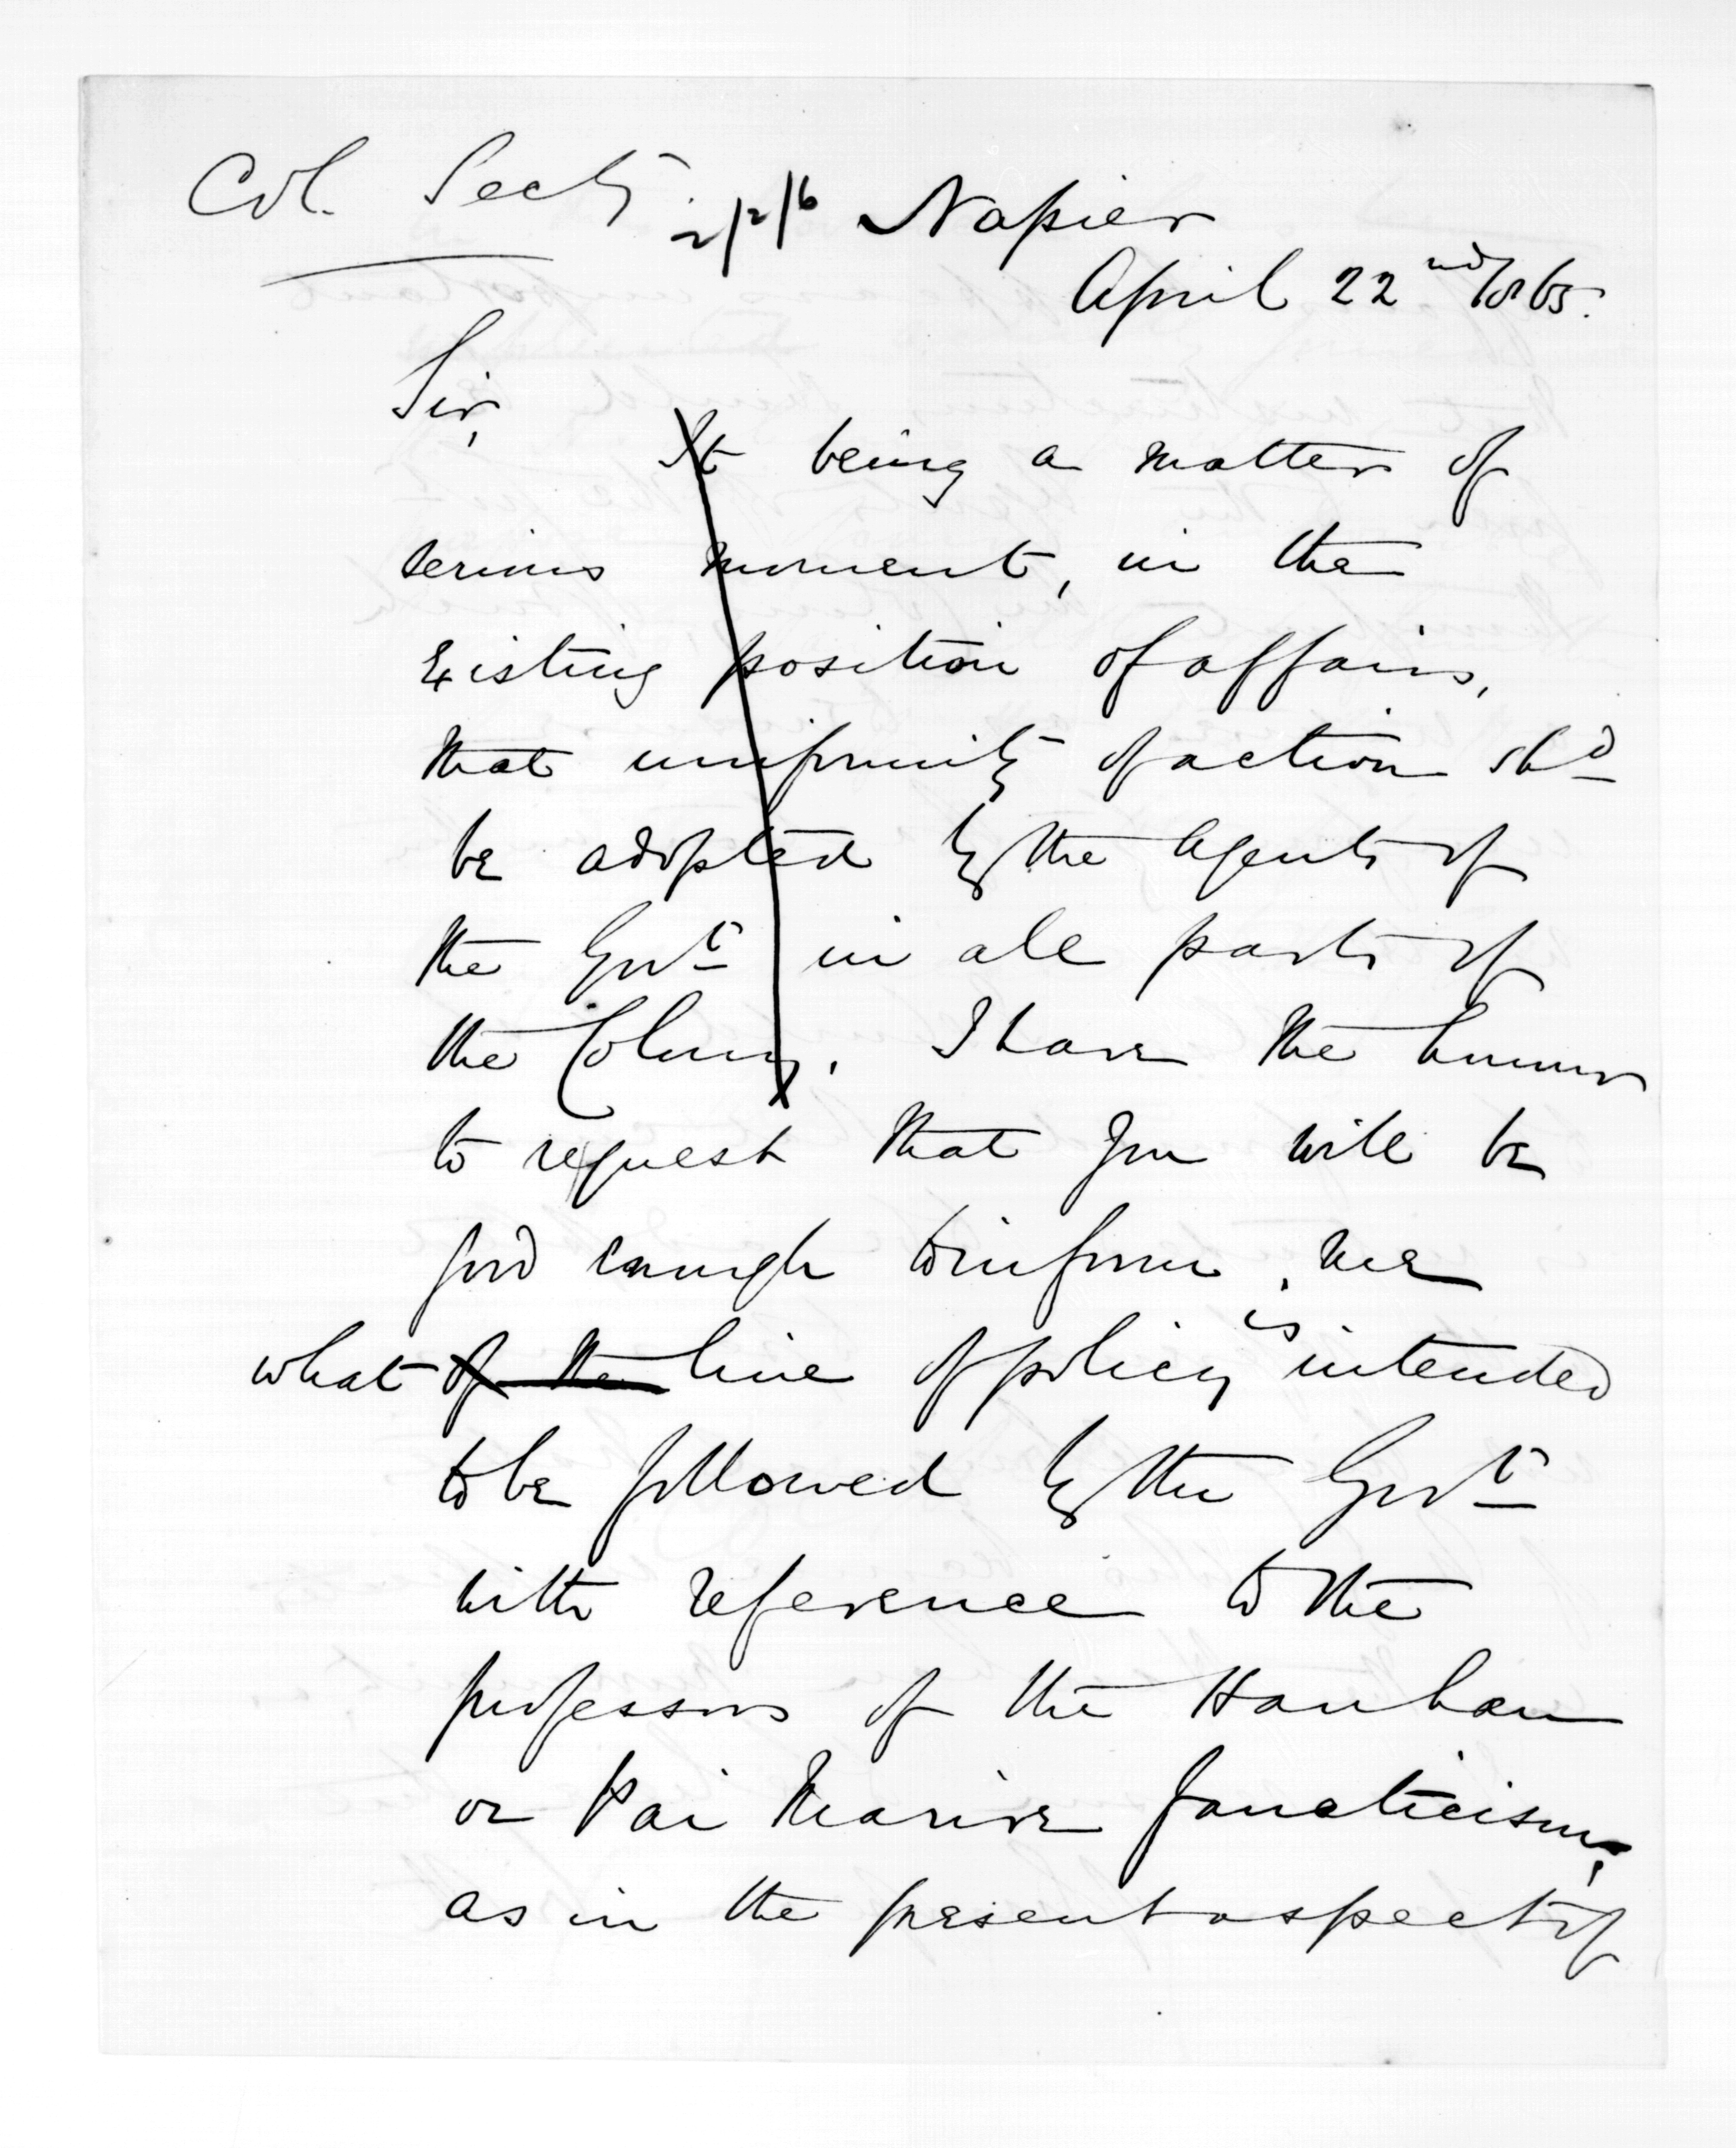 Col. Secty 2/2/6 Napier
April 22nd/65.
Sir,
It being a matter of
serious moment, in the
existing position of affairs,
that uniformity of action shd
be adopted by the Agents of
the Govt in all parts of
the Colony. I have the honor
to request that you will be
good enough to inform me
what of the line of policy is intended
to be followed by the Govt
with reference to the
professors of the Hau hau
or Pai Marire fanaticism,
as in the present aspect of